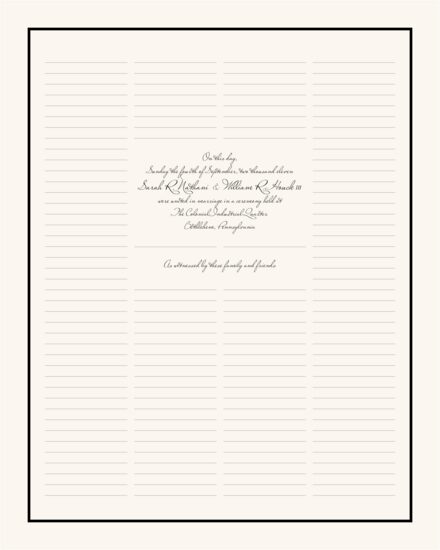 On this day,
Sunday the fourth of September, two thousand eleven
Sarah R Nathani & William R Houck III
were united in marriage in a ceremony held at
The Colonial Industrial Quarter
Bethlehem, Pennsylvania
As witnessed by these family and friends